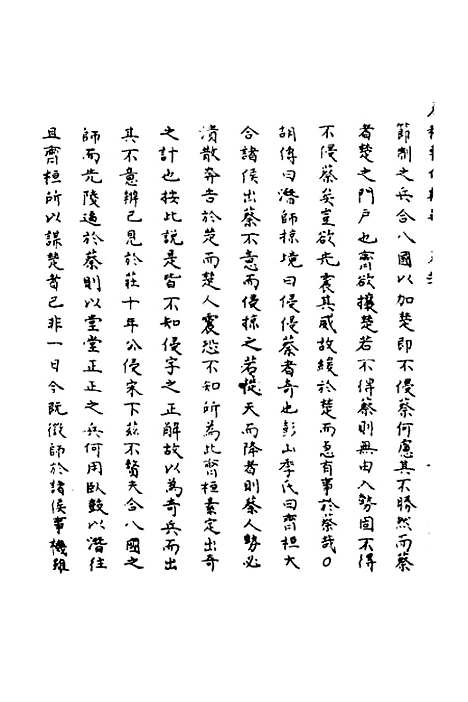 節制之兵合八國以加楚即不侵蔡何慮其不勝然而蔡
者楚之門戶也齊欲攘楚若不得蔡則無由入勢固不得
不侵蔡矣豈欲先震其威故緩於楚而亟有事於蔡哉○
胡傳曰潛師掠境曰侵侵蔡者奇也彭山季氏曰齊桓大
合諸侯出蔡不意而侵掠之若從天而降者則蔡人勢必
潰散奔告於楚而楚人震恐不知所為此齊桓素定出奇
之計也按此說是皆不知侵字之正解故以為奇兵而出
其不意辨已見於莊十年公侵宋下茲不贅夫合八國之
師而先陵過於蔡則以堂堂正正之兵何用臥鼓以潛往
且齊桓所以謀楚者已非一日今既徵師於諸侯事機雖